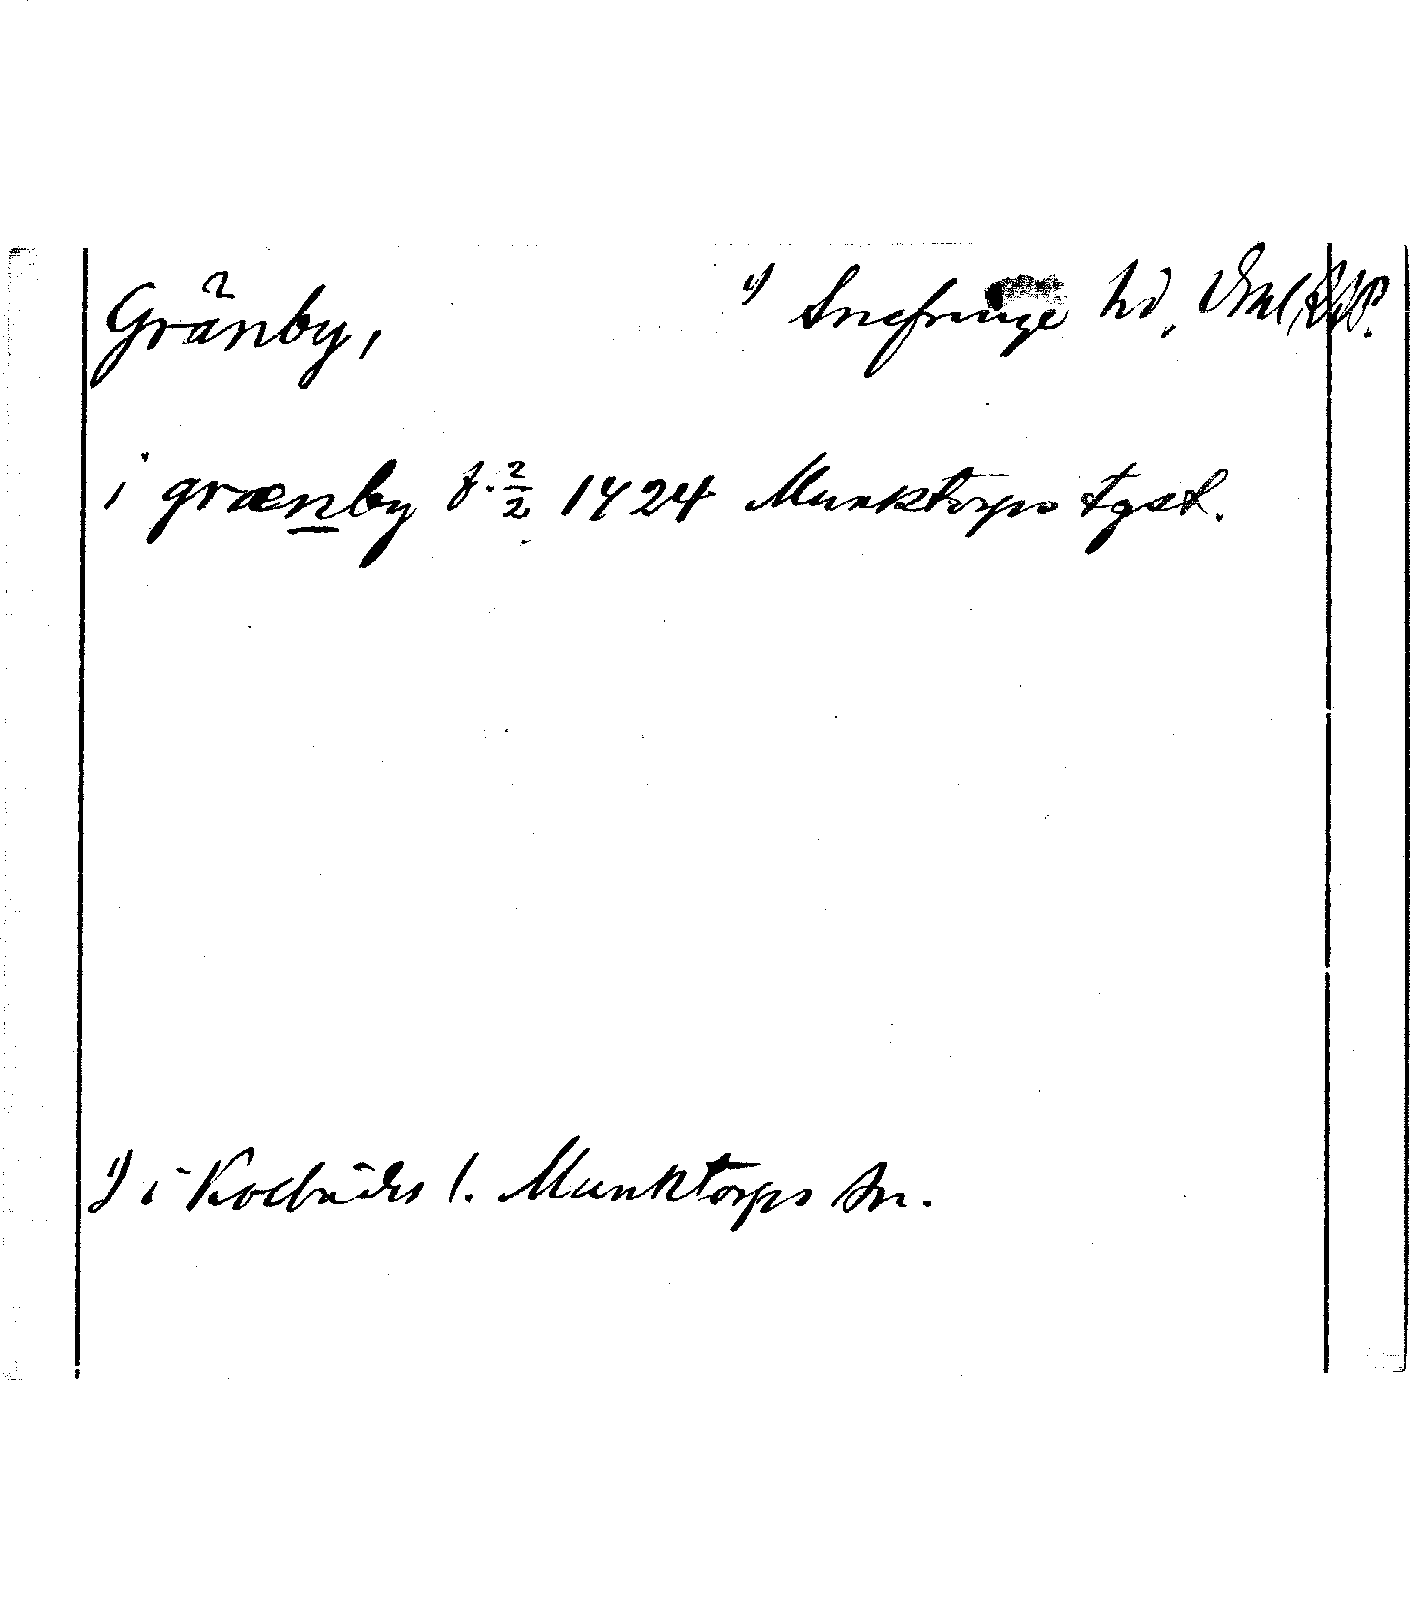 Gränby, 1) Snefringe hd, Vstml
i grænby f. 2/2 1424 Munktorps tgst.
1) i Kolbäcks l. Munktorps sn.